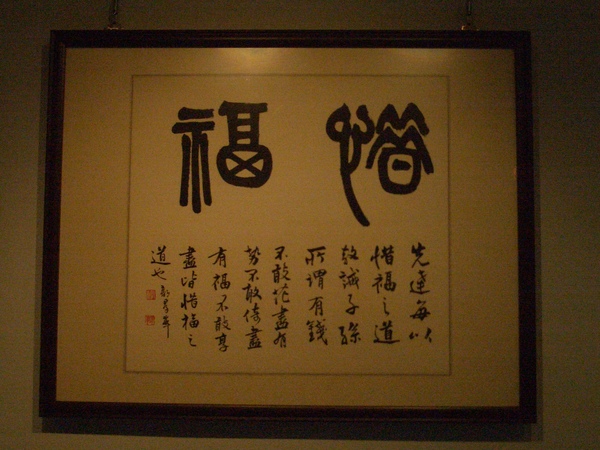 惜福
先達每以
惜福之道
教誡子孫
所謂有錢
不敢花盡有
勢不敢倚盡
有福不敢享
盡皆惜福之
道也